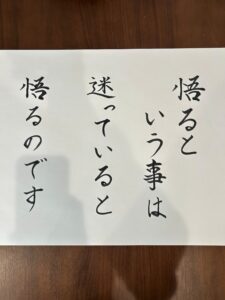 悟ると
いう事は
迷っていると
悟るのです